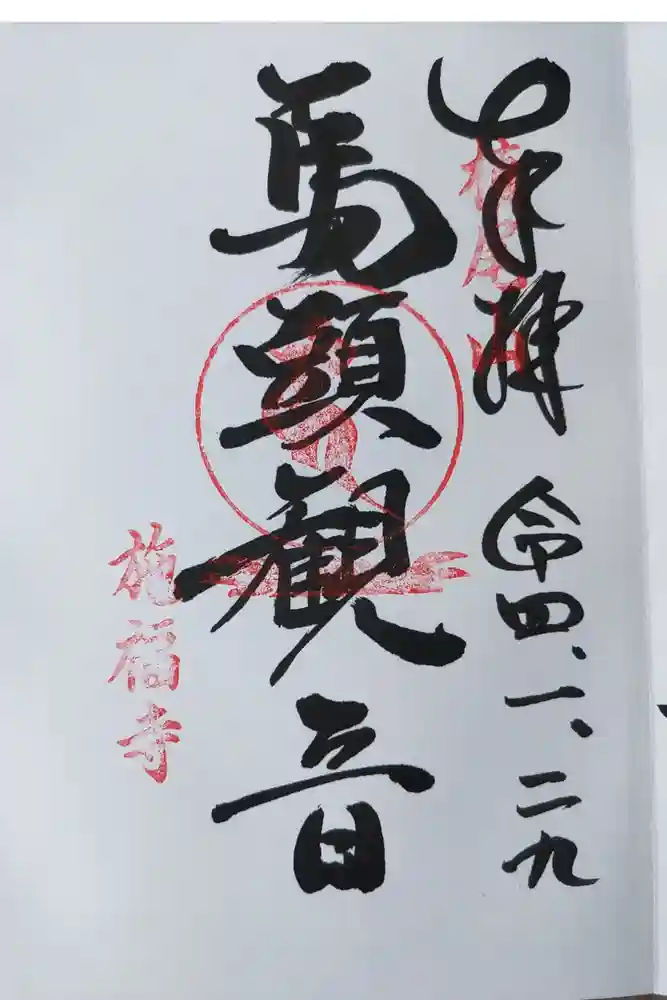 奉拝
槇尾山
令四、一、二九
馬頭観音
施福寺